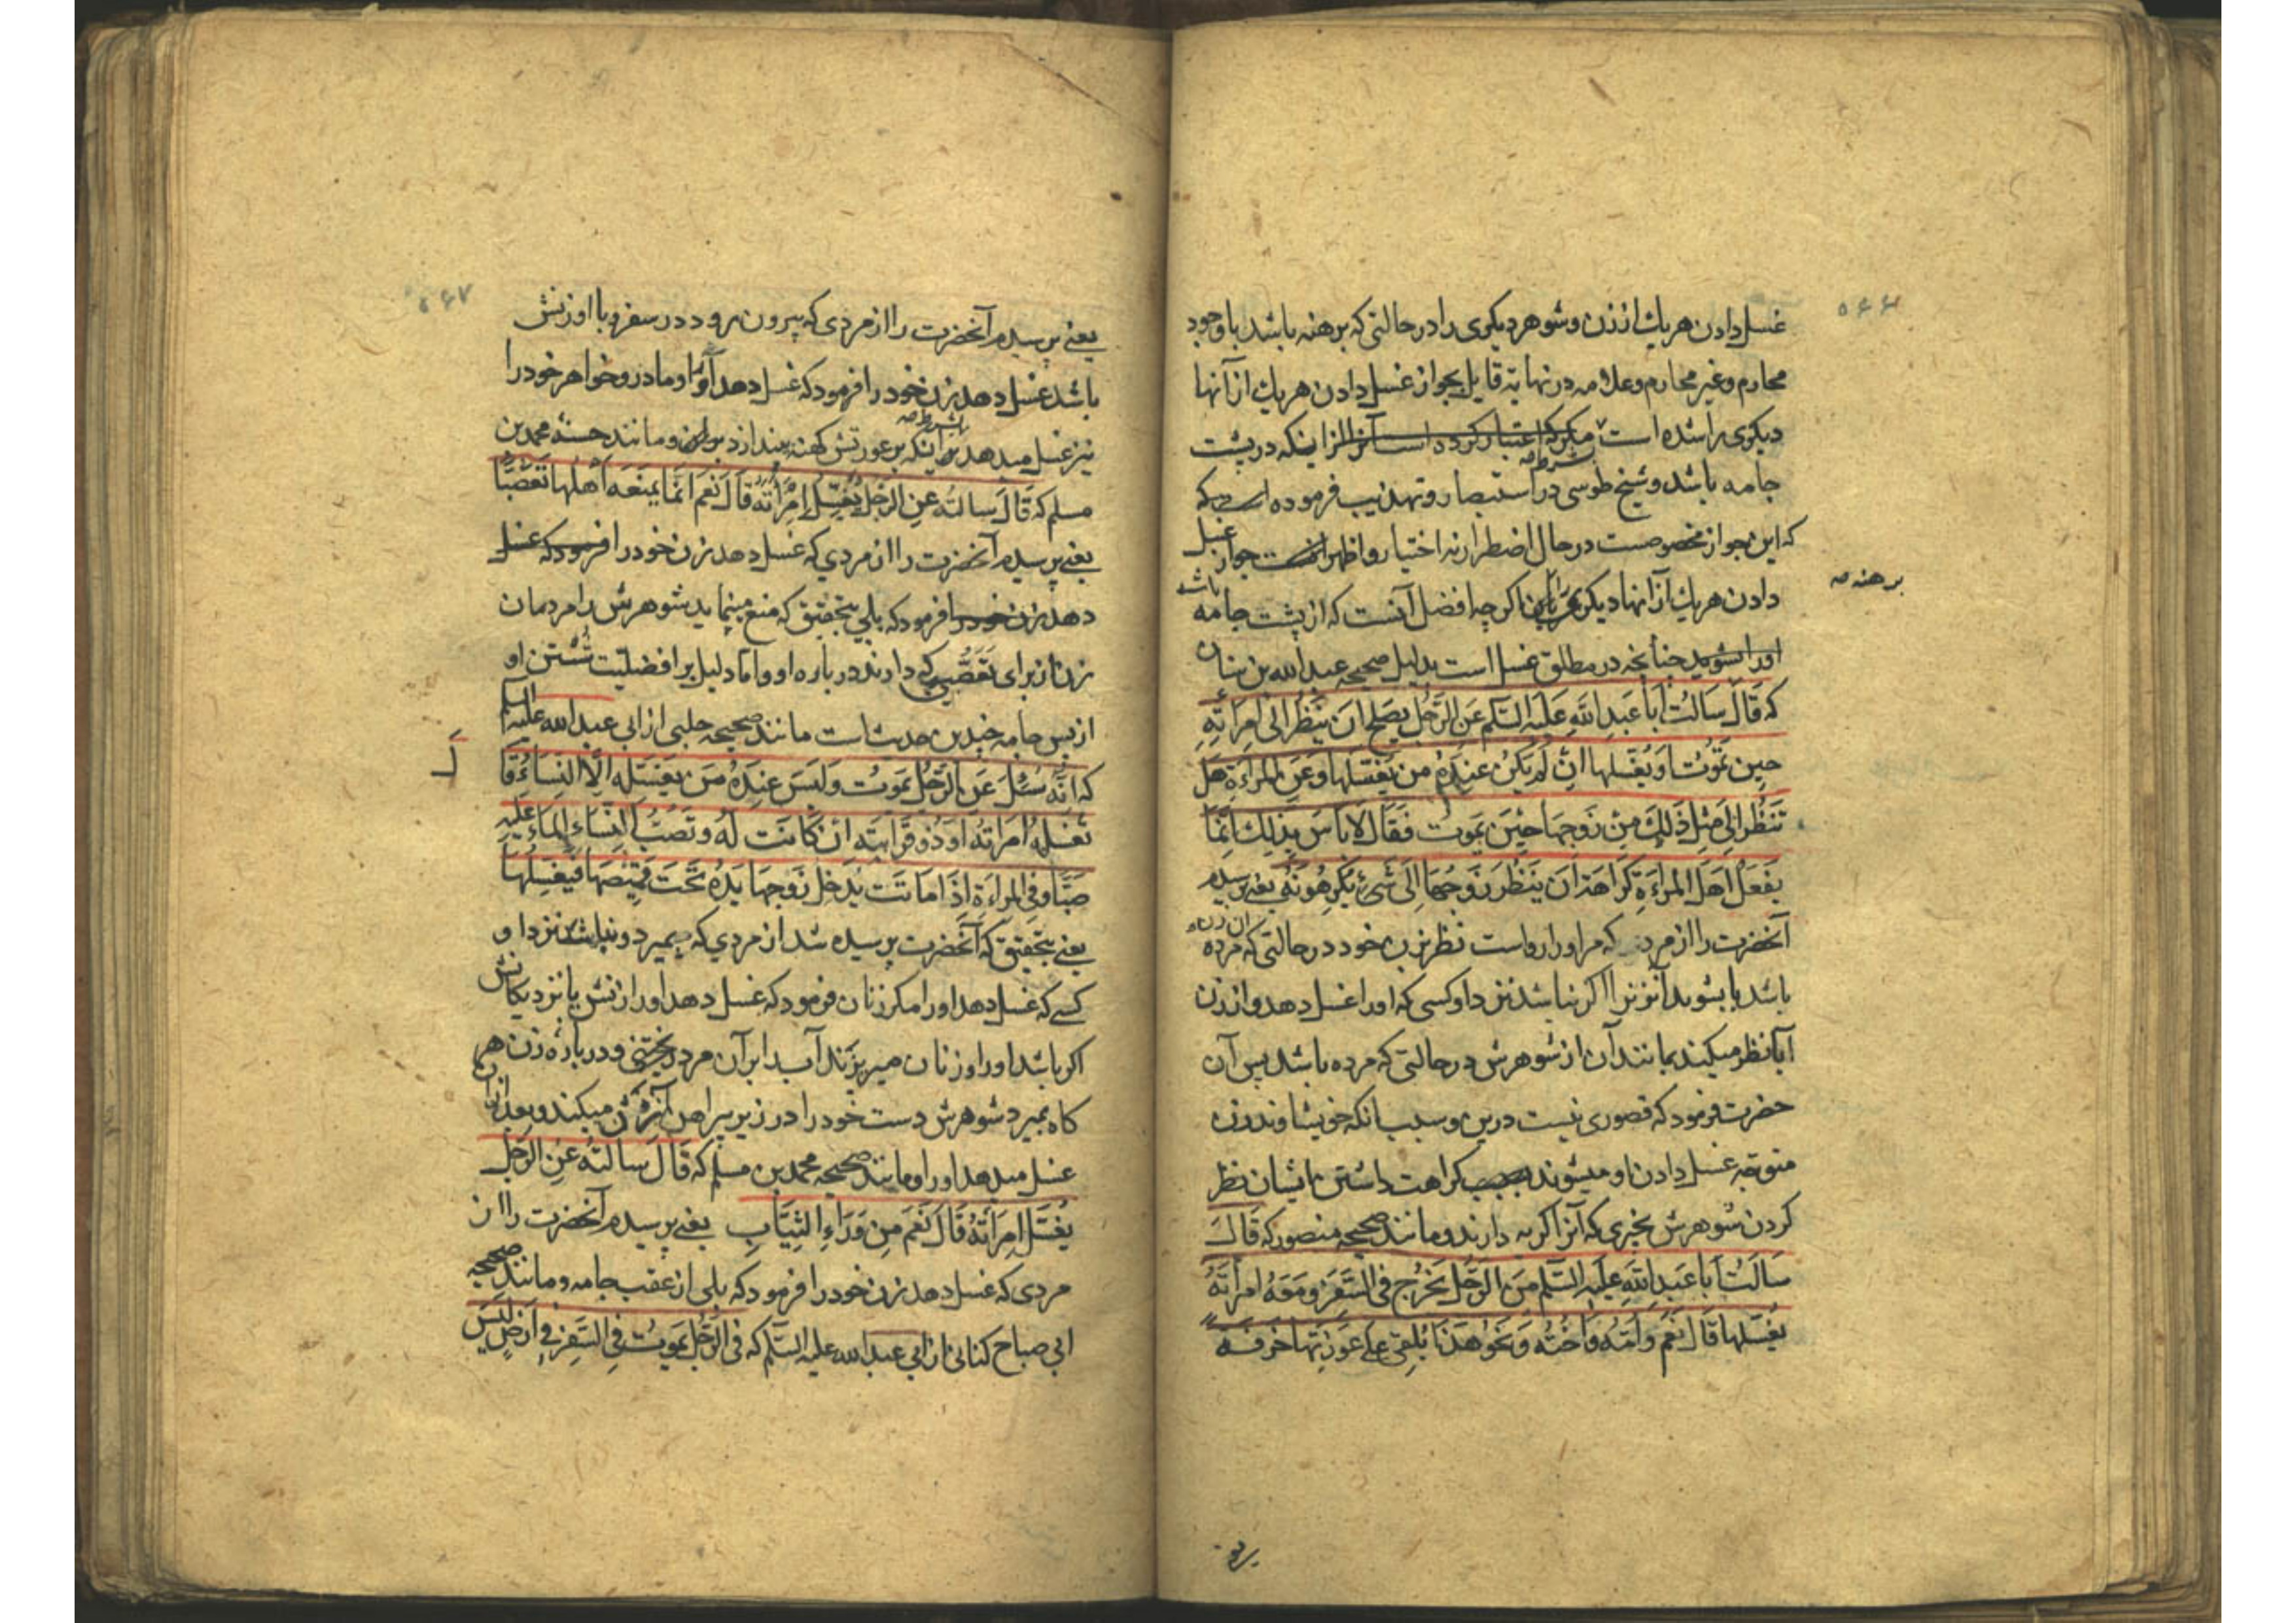 ۵۶۶
غسل دادن هر یك از زن و شوهر دیکری را در حالتی که برهنه باشد با وجود
محارم و غیر محارم و علامه در نهایه قایل بجواز غسل دادن هر یك از آنها
دیکری را شده است مکر که اعتبار کرده است آنرا از اینکه در پشت
بشرط صه
جامه باشد و شیخ طوسی در استبصار و تهذیب فرموده است که
که این جواز مخصوصست در حال اضطرار نه اختیار و اظهر جواز غسل
دادن هر یك از آنها دیکری را اکر چه افضل آنست که از پشت جامه باشد
برهنه صه
او را بشوید چنانچه در مطلق غسل است بدلیل صحیحه عبدالله بن سنان
که قَالَ سَالتُ اَبا عَبدِ اللهِ عَلَیهِ السَّلم عَنِ الرَّجُلِ یَصلح اَن یَنظُرَ الی اِمرَاتِهِ
حینَ تَمُوتُ اَو یُغَسِّلها اِن لَم یَکُن عِندَهُ مَن یُغَسِّلها وَعَنِ المَراءَةِ هَل
تَنظُر اِلی مِثلِ ذَلِكَ مِن زَوجِهَا حِینَ یَمُوت فَقَالَ لاَ بَاسَ بِذلِك اِنَّمَا
یَفعَلُ اَهلُ المَراءَةِ کَراهَةَ اَن یَنظُرَ زَوجُهَا اِلَی شَیءٍ یَکرِهُونَهُ یعنی پرسیدم
آنحضرت را از مردی که مر او را رواست نظر بزن خود در حالتی که مرده
ان زن
باشد یا بشوید آنزنرا اکر نباشد نزد او کسی که او را غسل دهد و از زن
آیا نظر میکند بمانند آن از شوهرش در حالتی که مرده باشد پس آن
حضرت فرمود که قصوری نیست درین و سبب اینکه خویشاوند زن
متوجه غسل دادن او میشوند بسبب کراهت داشتن ایشان نظر
کردن شوهرش بچیزی که آنرا کریه دارند و مانند صحیحه منصور که قَالَ
سَالتُ اَبا عَبدِ اللهِ عَلَیهِ السَّلم مِنَ الرَّجُلِ یَخرُج فِی السَّفَرِ وَمَعَهُ امرَاَتَهُ
یُغَسِّلها قَالَ نَعَم وَ اُمَّه وَاُختُه وَنَحو هَذا یُلقی عَلی عَورَتِهَا خرقَه
یعنی
۵۶۷
یعنی پرسیدم آنحضرت را از مردی که بیرون رود در سفر و با او زنش
باشد غسل دهد زن خود را فرمود که غسل دهد او را و مادر و خواهر خود را
بشرط صه
نیز غسل میدهد اینکه بر عورتش کهنه بیندازد و مانند حسنه محمد بن
مسلم که قَالَ سالتُه عنِ الرَّجُل یُغَسِّلُ اِمرَأتَهُ قَالَ نَعَم انَّمَا یَمنَعَه اَهلُها تَعَصُّبًا
یعنی پرسیدم آنحضرت را از مردی که غسل دهد زن خود را فرمود که غسل
دهد زن خود را فرمود که بلی بتحقیق که منع مینماید شوهرش را مردمان
زن از برای تَعَصُّبی که دارند درباره او و اما دلیل بر افضلیّت شُستن او
از پس جامه چندین حدیث است مانند صحیحه حلبی از ابی عبدالله علیه السلم
که اَنَّهُ سُئِلَ عَنِ الرَّجُل یَمَوتُ وَلَیسَ عِندَهُ مَن یغَسِّله اِلَّا النِسَاءُ قَا
لَ
تغسلهُ امرَاتُه اَو ذُو قَرابَتِه ان کَانَت لَهُ وتَصُبُّ النِّسَاءُ المَاءَ عَلَیهِ
صَبًّا وفِی المراءَة اِذَا مَاتَت یُدخِل زَوجهَا یَدَهُ تَحتَ قَمِیصَهَا فَیُغَسِّلُهَا
یعنی بتحقیق که آنحضرت پرسیده شد از مردی که بمیرد و نباشد نزد او
کسی که غسل دهد او را مکر زنان فرمود که غسل دهد او را زنش یا نزدیکانش
اکر باشد او را و زنان میریزند آب را بر آن مرد ریختنی و درباره زن هر
کاه بمیرد شوهرش دست خود را در زیر پیراهن آن زن میکند و بعد از آن
غسل میدهد او را و مانند صحیحه محمد بن مسلم که قَالَ سَالتُه عَنِ الرَّجُل
یُغَسِّل امرَاَتَهُ قَالَ نَعَم مِن وَرَاءِ الثِیَابِ یعنی پرسیدم آنحضرت را از
مردی که غسل دهد زن خود را فرمود که بلی از عقب جامه و مانند صحیحه
ابی صباح کنانی از ابی عبدالله علیه السَّلم که فی الرَّجُل یَمُوتُ فِی السَّفَرِ فِی اَرضٍ لَیسَ